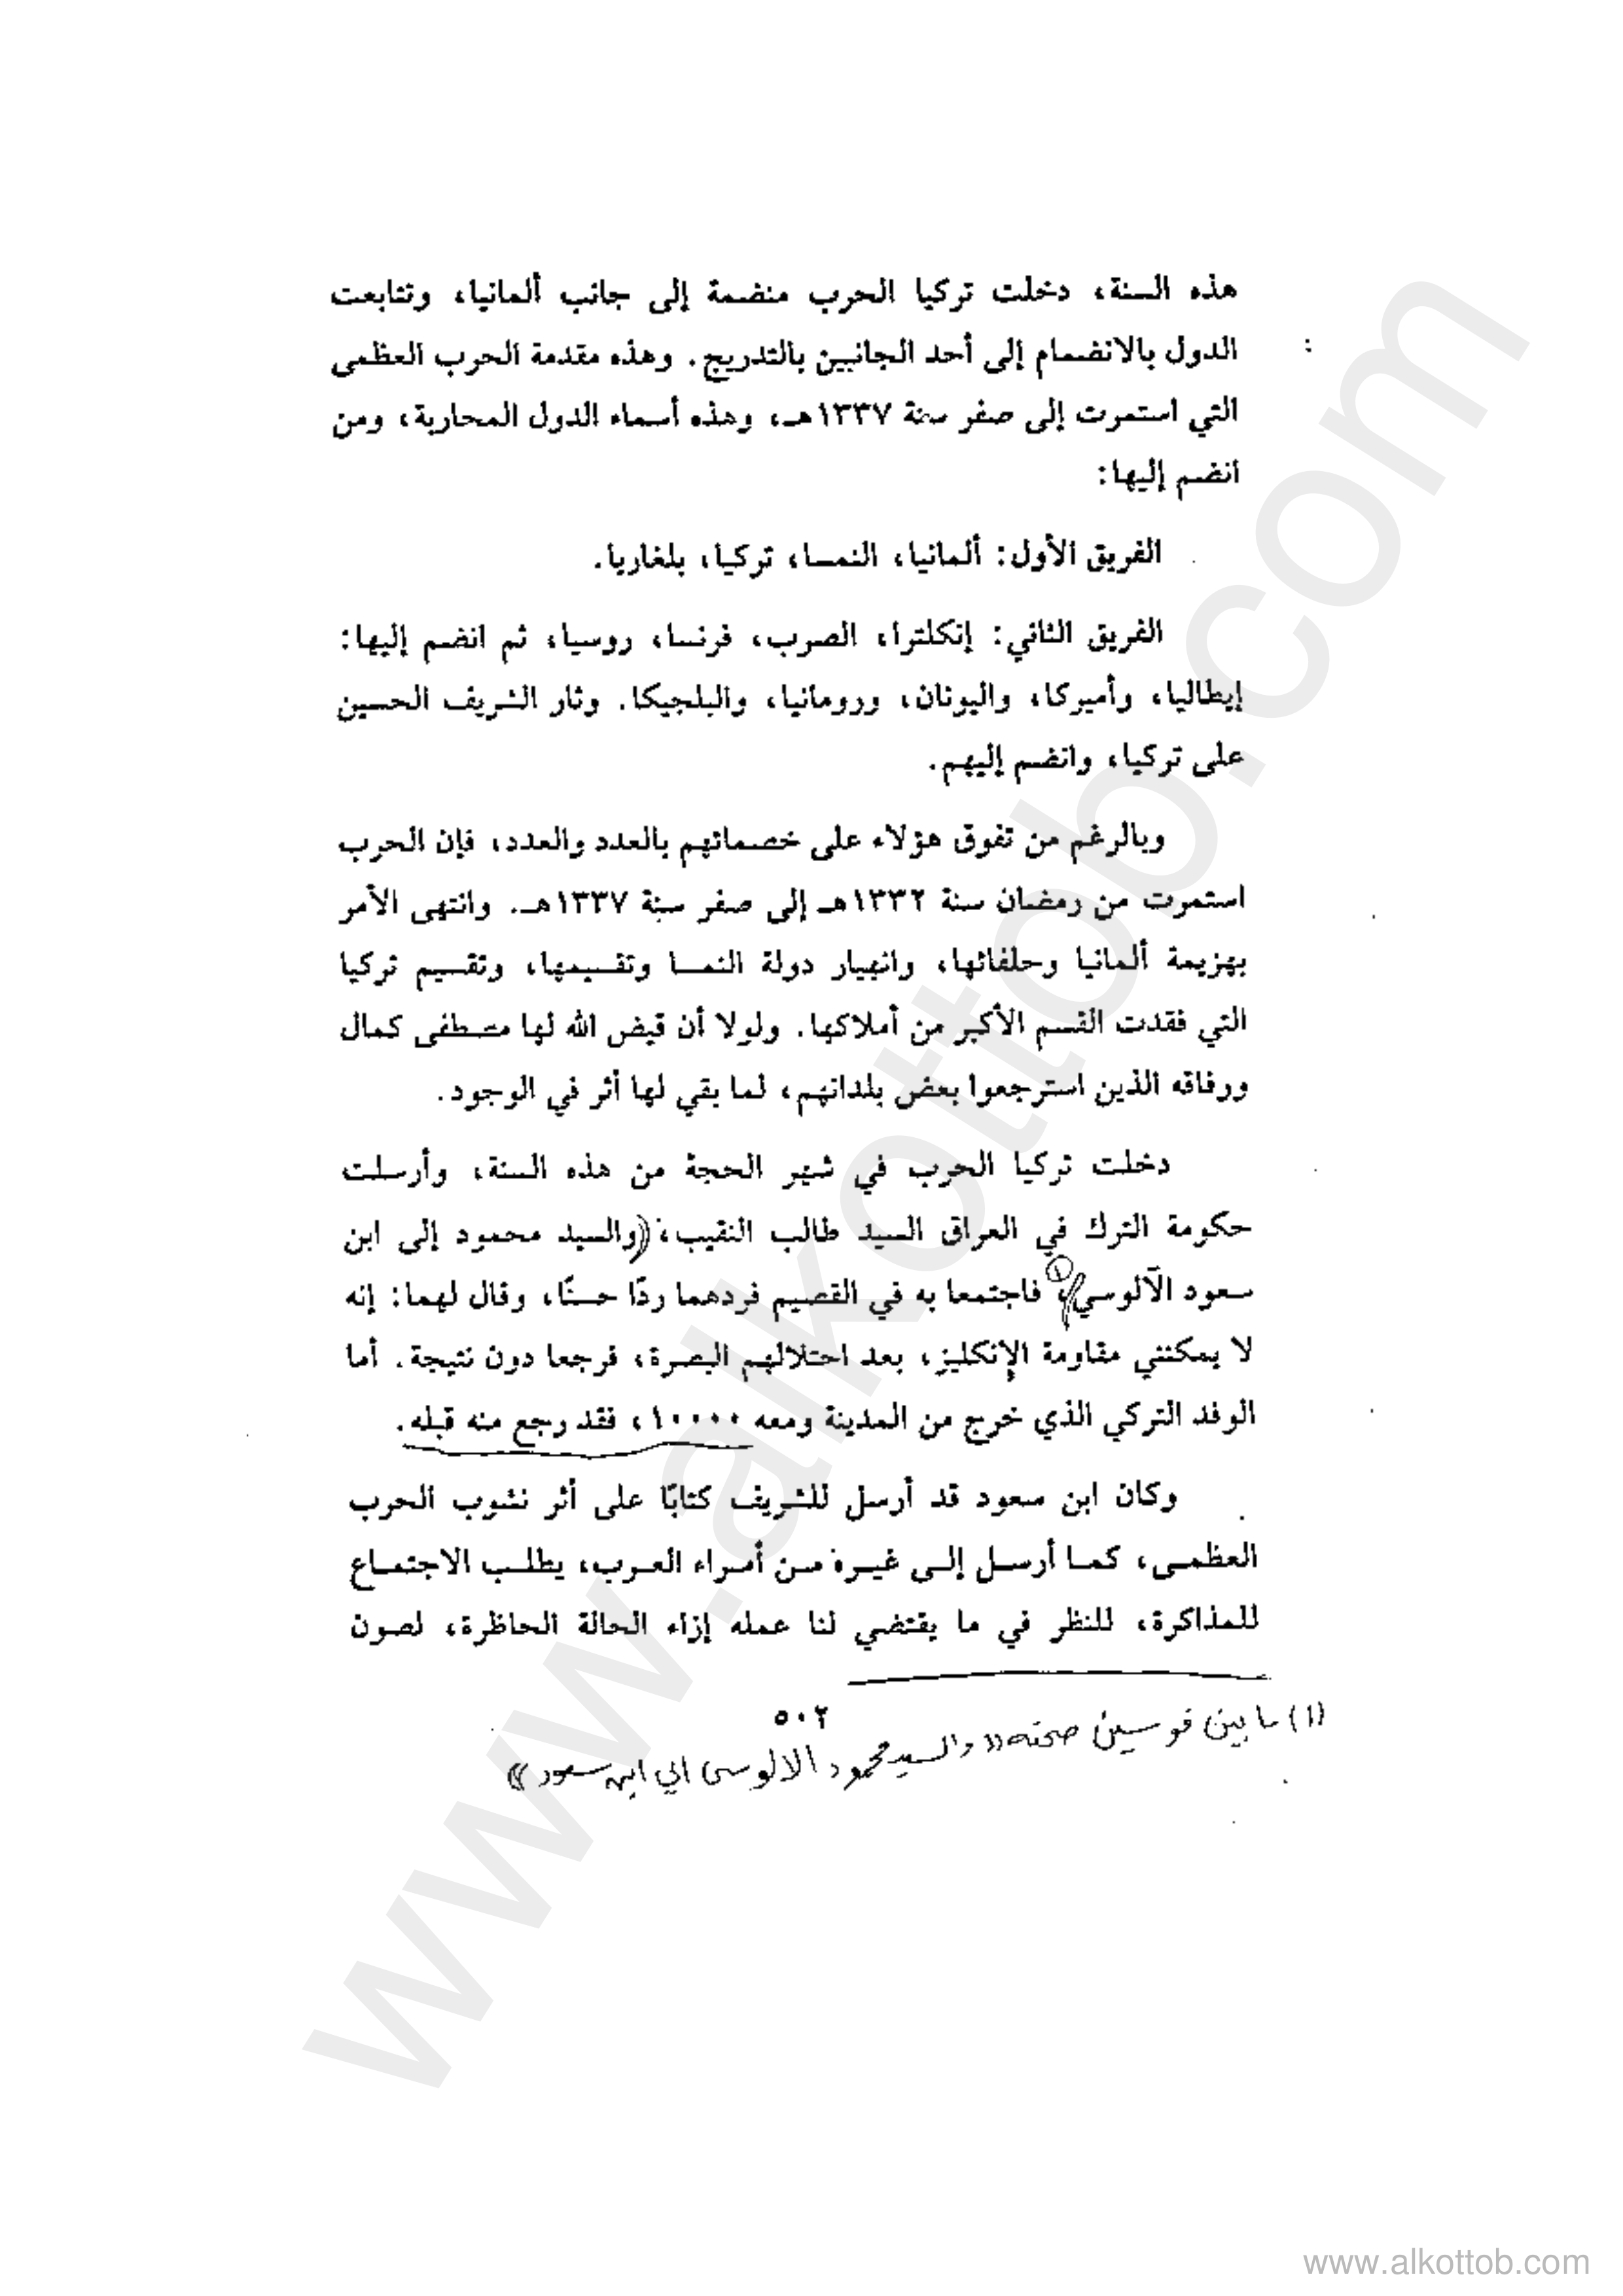 هذه السنة، دخلت تركيا الحرب منضمة إلى جانب ألمانيا، وتتابعت
الدول بالانضمام إلى أحد الجانبين بالتدريج. وهذه مقدمة الحرب العظمى
التي استمرت إلى صفر سنة ١٣٣٧هـ، وهذه أسماء الدول المحاربة، ومن
انضم إليها:
الفريق الأول: ألمانيا، النمسا، تركيا، بلغاريا.
الفريق الثاني: إنكلترا، الصرب، فرنسا، روسيا، ثم انضم إليها:
إيطاليا، وأميركا، واليونان، ورومانيا، والبلجيكا. وثار الشريف الحسين
على تركيا، وانضم إليهم.
وبالرغم من تفوق هؤلاء على خصمائهم بالعدد والعدد، فإن الحرب
استمرت من رمضان سنة ١٣٣٢هـ إلى صفر سنة ١٣٣٧هـ. وانتهى الأمر
بهزيمة ألمانيا وحلفائها، وانهيار دولة النمسا وتقسيمها، وتقسيم تركيا
التي فقدت القسم الأكبر من أملاكها. ولولا أن قيض الله لها مصطفى كمال
ورفاقه الذين استرجعوا بعض بلدانهم، لما بقي لها أثر في الوجود.
دخلت تركيا الحرب في شهر الحجة من هذه السنة، وأرسلت
حكومة الترك في العراق السيد طالب النقيب، ((والسيد محمود إلى ابن
سعود الآلوسي))(١)، فاجتمعا به في القصيم فردهما ردًا حسنًا، وقال لهما: إنه
لا يمكنني مقاومة الإنكليز، بعد احتلالهم البصرة، فرجعا دون نتيجة. أما
الوفد التركي الذي خرج من المدينة ومعه ١٠٠٠٠، فقد رجع منه قبله.
وكان ابن سعود قد أرسل للشريف كتابًا على أثر نشوب الحرب
العظمى، كما أرسل إلى غيره من أمراء العرب، يطلب الاجتماع
للمذاكرة، للنظر في ما يقتضي لنا عمله إزاء الحالة الحاظرة، لصون
٥٠٢
(١) ما بين قوسين صحته ((والسيد محمود الالوسي الى ابن سعود))
www.alkottob.com
www.alkottob.com